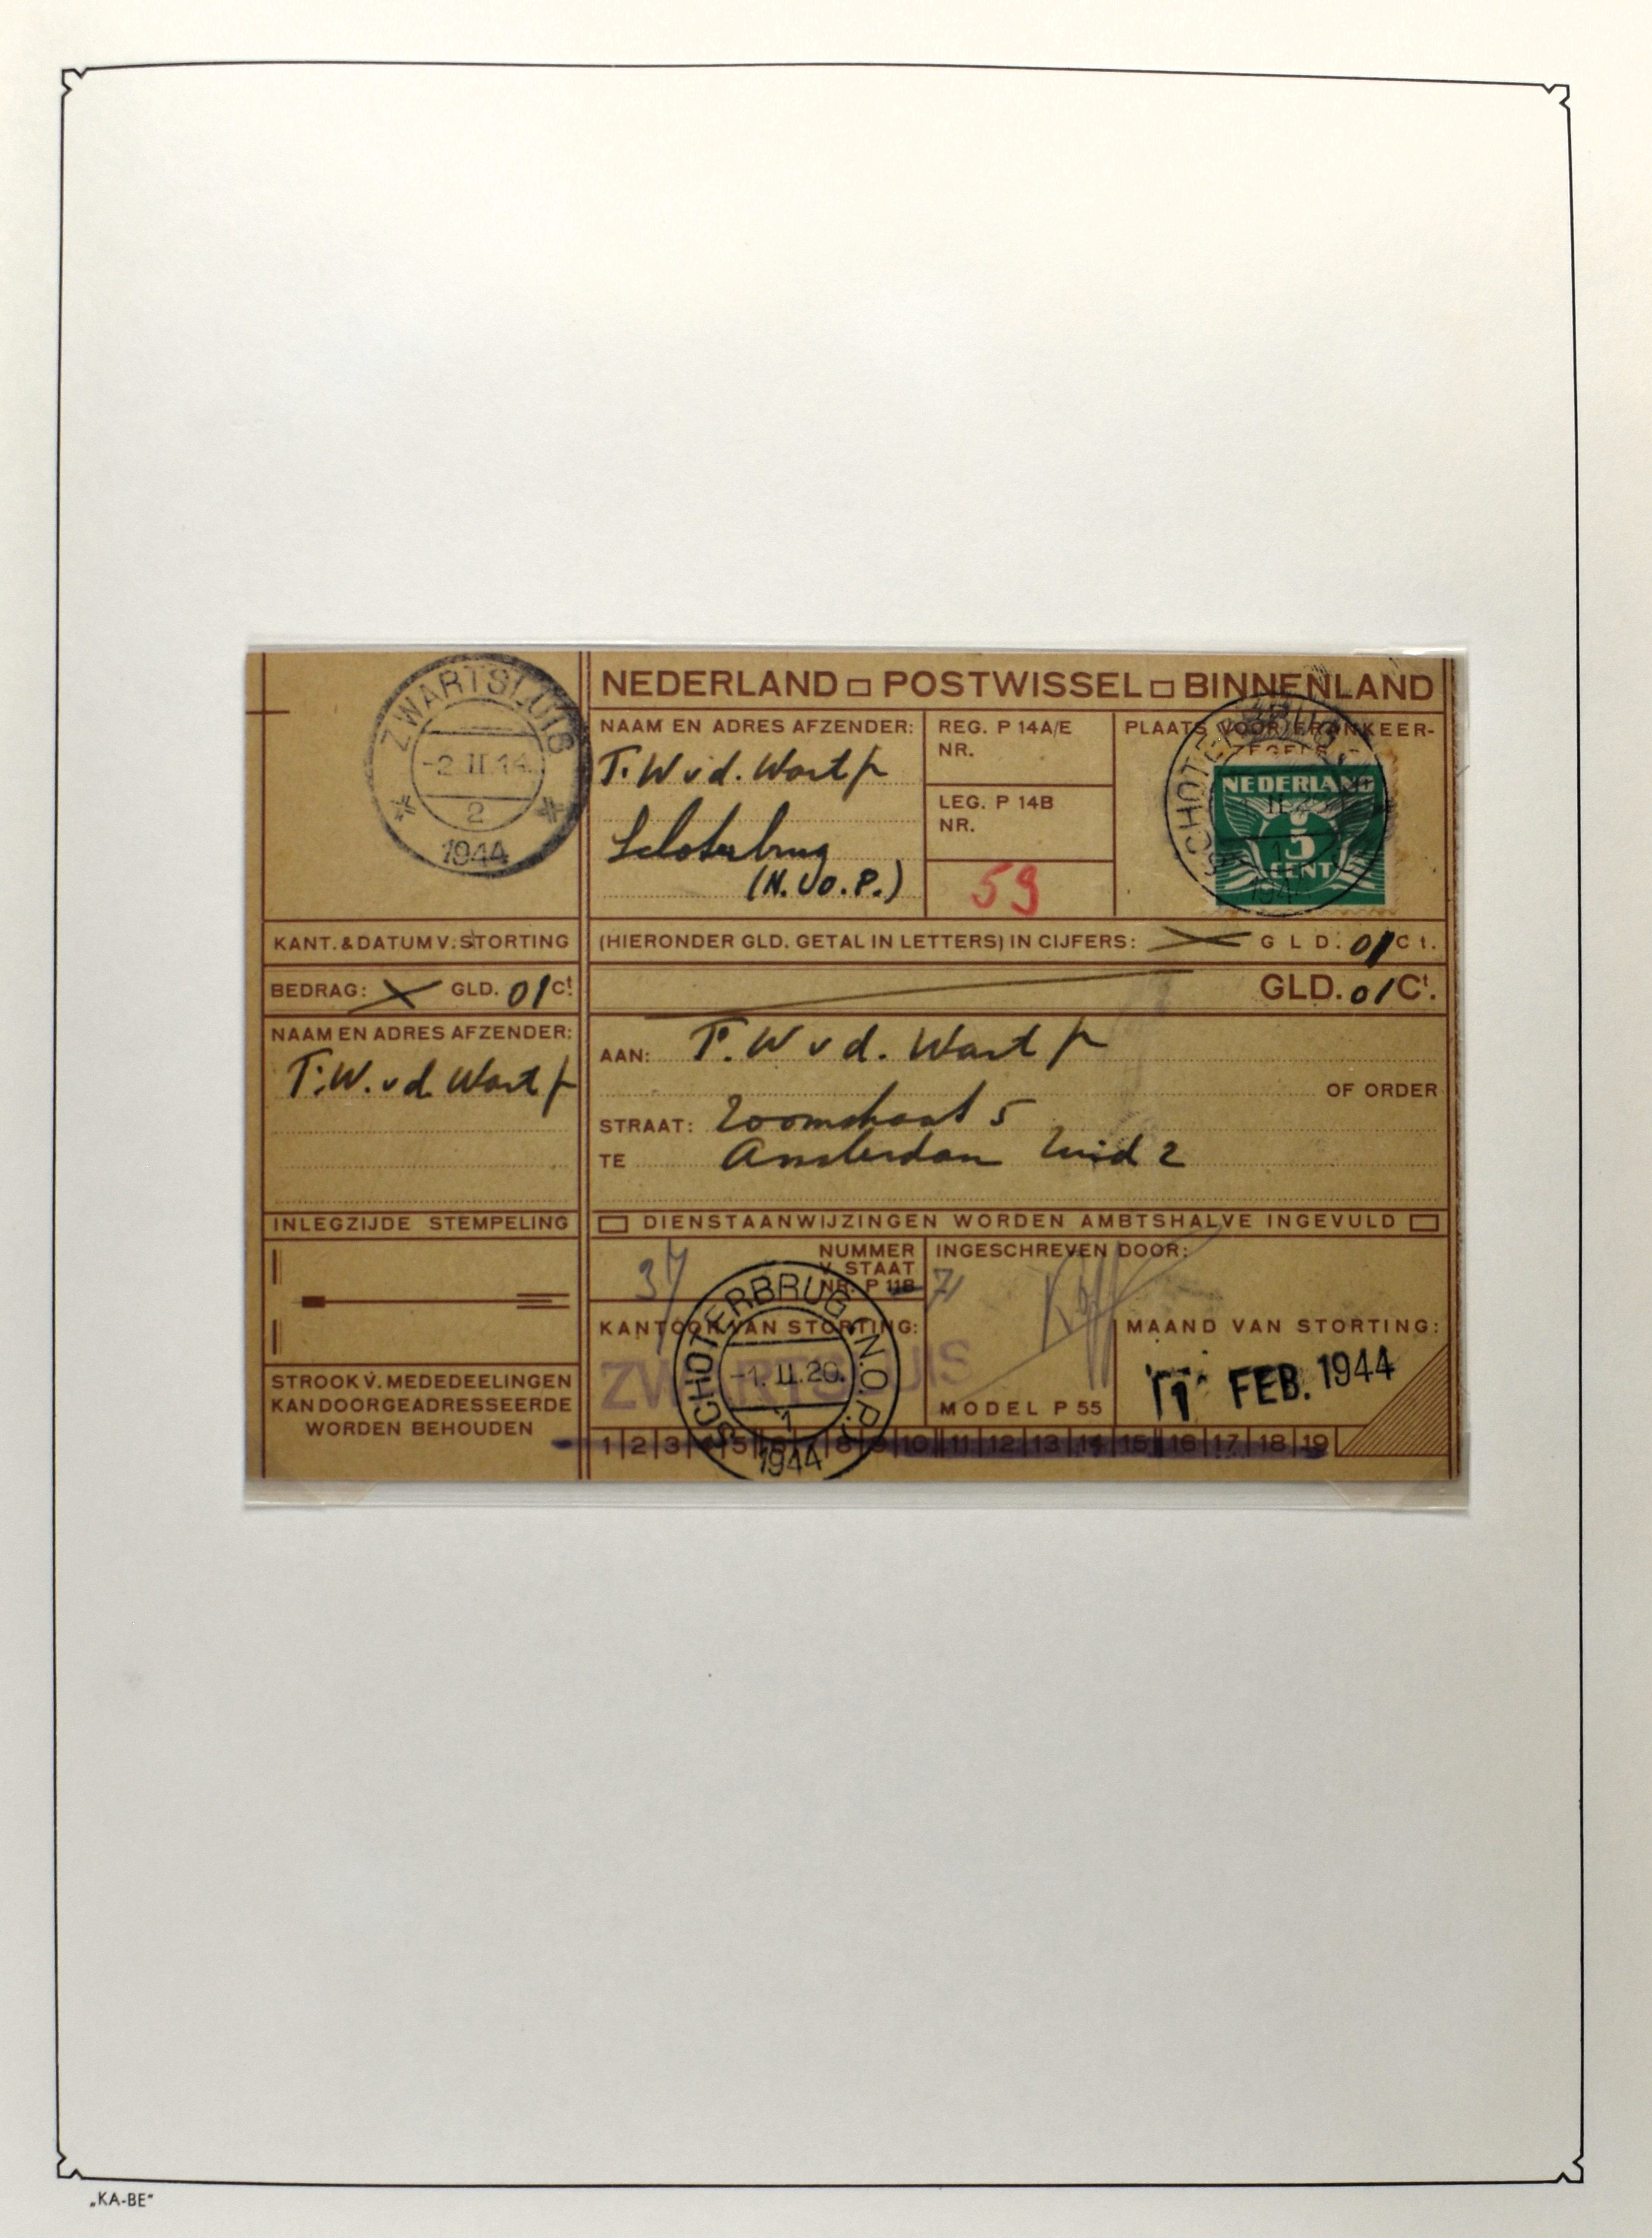 ZWARTSLUIS
-2.II.14.
2
1944
NEDERLAND POSTWISSEL BINNENLAND
NAAM EN ADRES AFZENDER:
T. W v d. Wart
Schoterbrug
(N.O.P.)
REG. P 14A/E
NR.
LEG. P 14B
NR.
59
PLAATS VOOR FRANKEER-
ZEGELS
SCHOTERBRUG
1944
NEDERLAND
5
CENT
KANT. & DATUM V. STORTING
(HIERONDER GLD. GETAL IN LETTERS) IN CIJFERS: GLD. 01 Ct.
BEDRAG: GLD. 01 Ct
GLD. 01 Ct.
NAAM EN ADRES AFZENDER:
T. W. v d. Wart
AAN: T. W v d. Wart
OF ORDER
STRAAT: Zoomstraat 5
TE Amsterdam Zuid 2
INLEGZIJDE STEMPELING
DIENSTAANWIJZINGEN WORDEN AMBTSHALVE INGEVULD
37
NUMMER
V. STAAT
NR. P 11B
INGESCHREVEN DOOR:
KANTOOR VAN STORTING:
ZWARTSLUIS
SCHOTERBRUG (N.O.P.)
-1.II.20.
1
1944
MODEL P 55
MAAND VAN STORTING:
1 FEB. 1944
STROOK V. MEDEDEELINGEN
KAN DOORGEADRESSEERDE
WORDEN BEHOUDEN
1 2 3 4 5 6 7 8 9 10 11 12 13 14 15 16 17 18 19
„KA-BE“